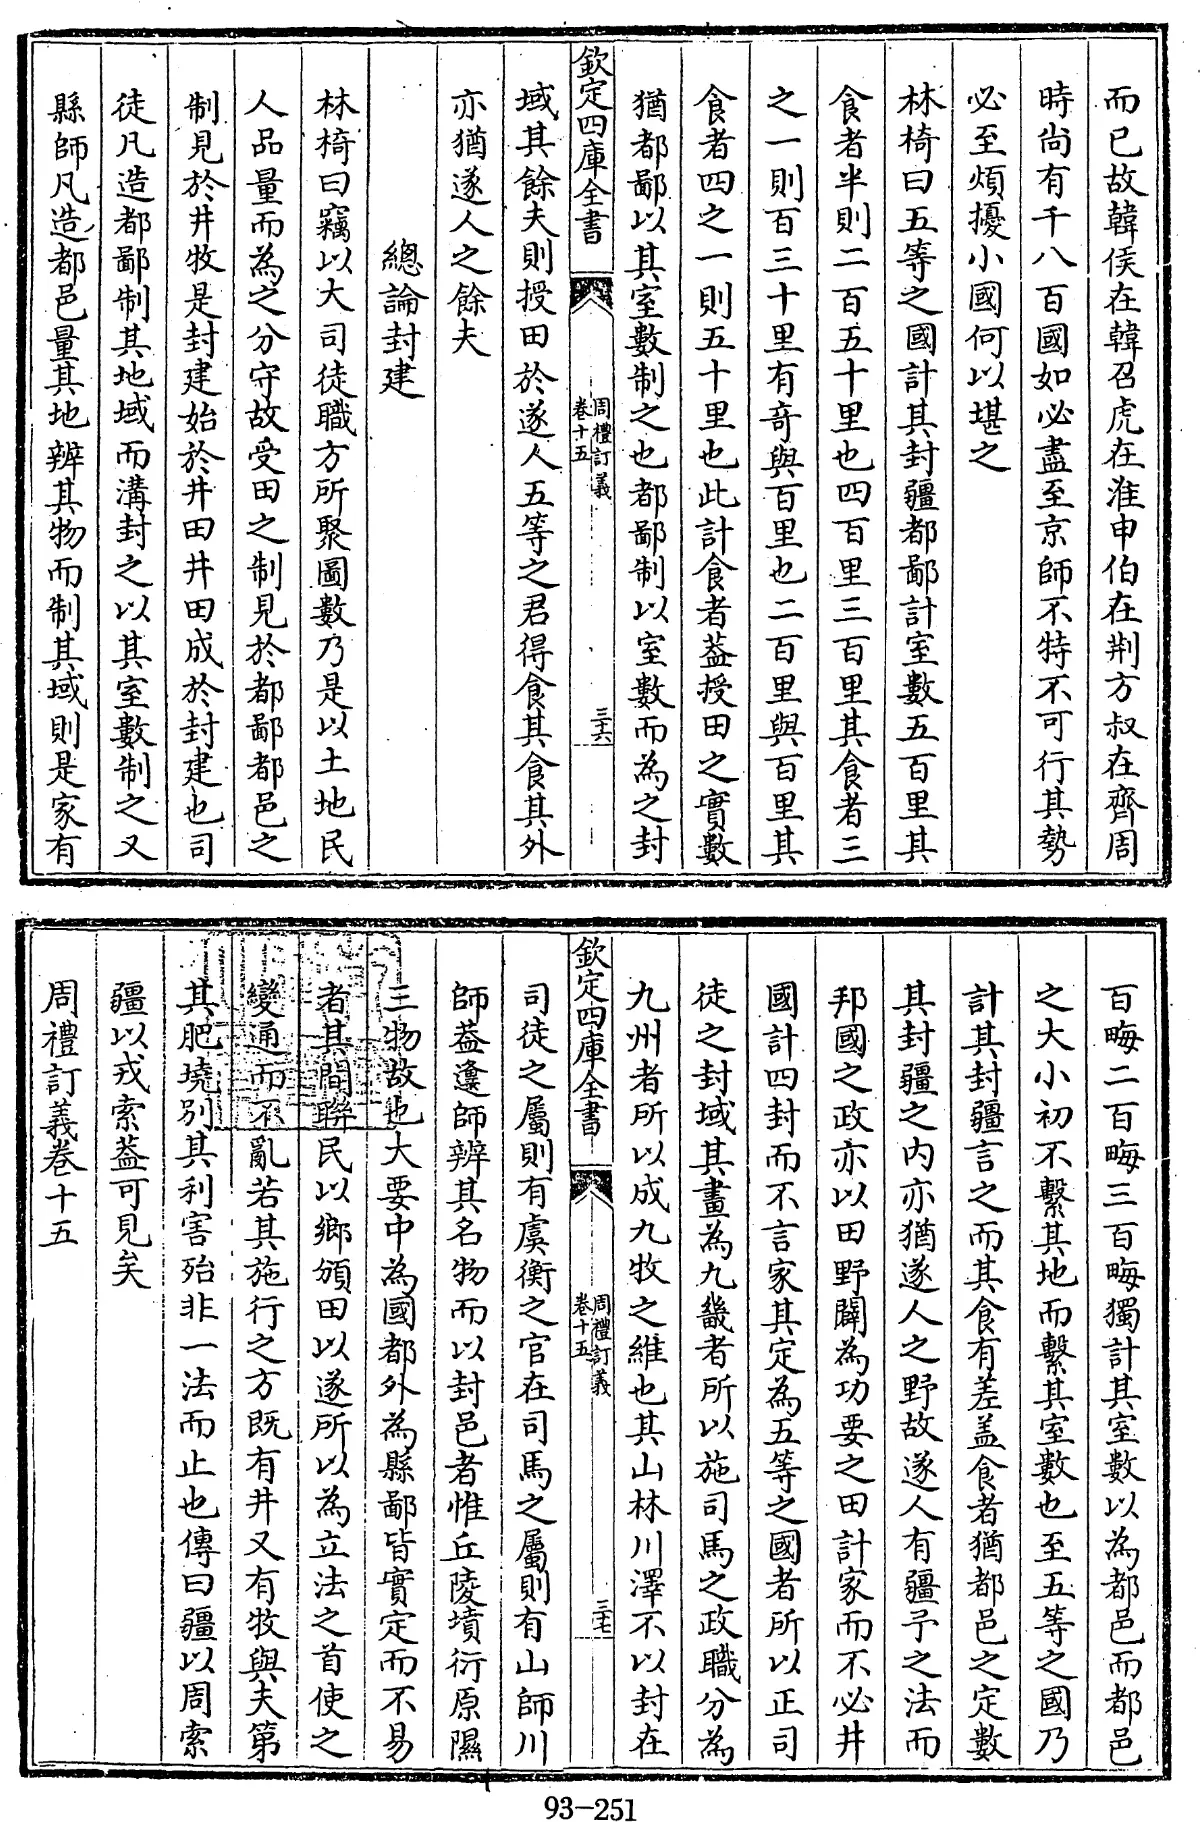 而已故韓侯在韓召虎在淮申伯在荆方叔在齊周
時尚有千八百國如必盡至京師不特不可行其勢
必至煩擾小國何以堪之
林椅曰五等之國計其封疆都鄙計室數五百里其
食者半則二百五十里也四百里三百里其食者三
之一則百三十里有奇與百里也二百里與百里其
食者四之一則五十里也此計食者葢授田之實數
猶都鄙以其室數制之也都鄙制以室數而為之封
欽定四庫全書
周禮訂義
卷十五
三六
域其餘夫則授田於遂人五等之君得食其食其外
亦猶遂人之餘夫
總論封建
林椅曰竊以大司徒職方所聚圖數乃是以土地民
人品量而為之分守故受田之制見於都鄙都邑之
制見於井牧是封建始於井田井田成於封建也司
徒凡造都鄙制其地域而溝封之以其室數制之又
縣師凡造都邑量其地辨其物而制其域則是家有
百畮二百畮三百畮獨計其室數以為都邑而都邑
之大小初不繫其地而繫其室數也至五等之國乃
計其封疆言之而其食有差盖食者猶都邑之定數
其封疆之内亦猶遂人之野故遂人有疆予之法而
邦國之政亦以田野闢為功要之田計家而不必井
國計四封而不言家其定為五等之國者所以正司
徒之封域其畫為九畿者所以施司馬之政職分為
九州者所以成九牧之維也其山林川澤不以封在
欽定四庫全書
周禮訂義
卷十五
三七
司徒之屬則有虞衡之官在司馬之屬則有山師川
師葢邍師辨其名物而以封邑者惟丘陵墳衍原隰
三物故也大要中為國都外為縣鄙皆實定而不易
者其間聯民以鄉頒田以遂所以為立法之首使之
變通而不亂若其施行之方既有井又有牧與夫第
其肥墝別其利害殆非一法而止也傳曰疆以周索
疆以戎索葢可見矣
周禮訂義卷十五
93-251